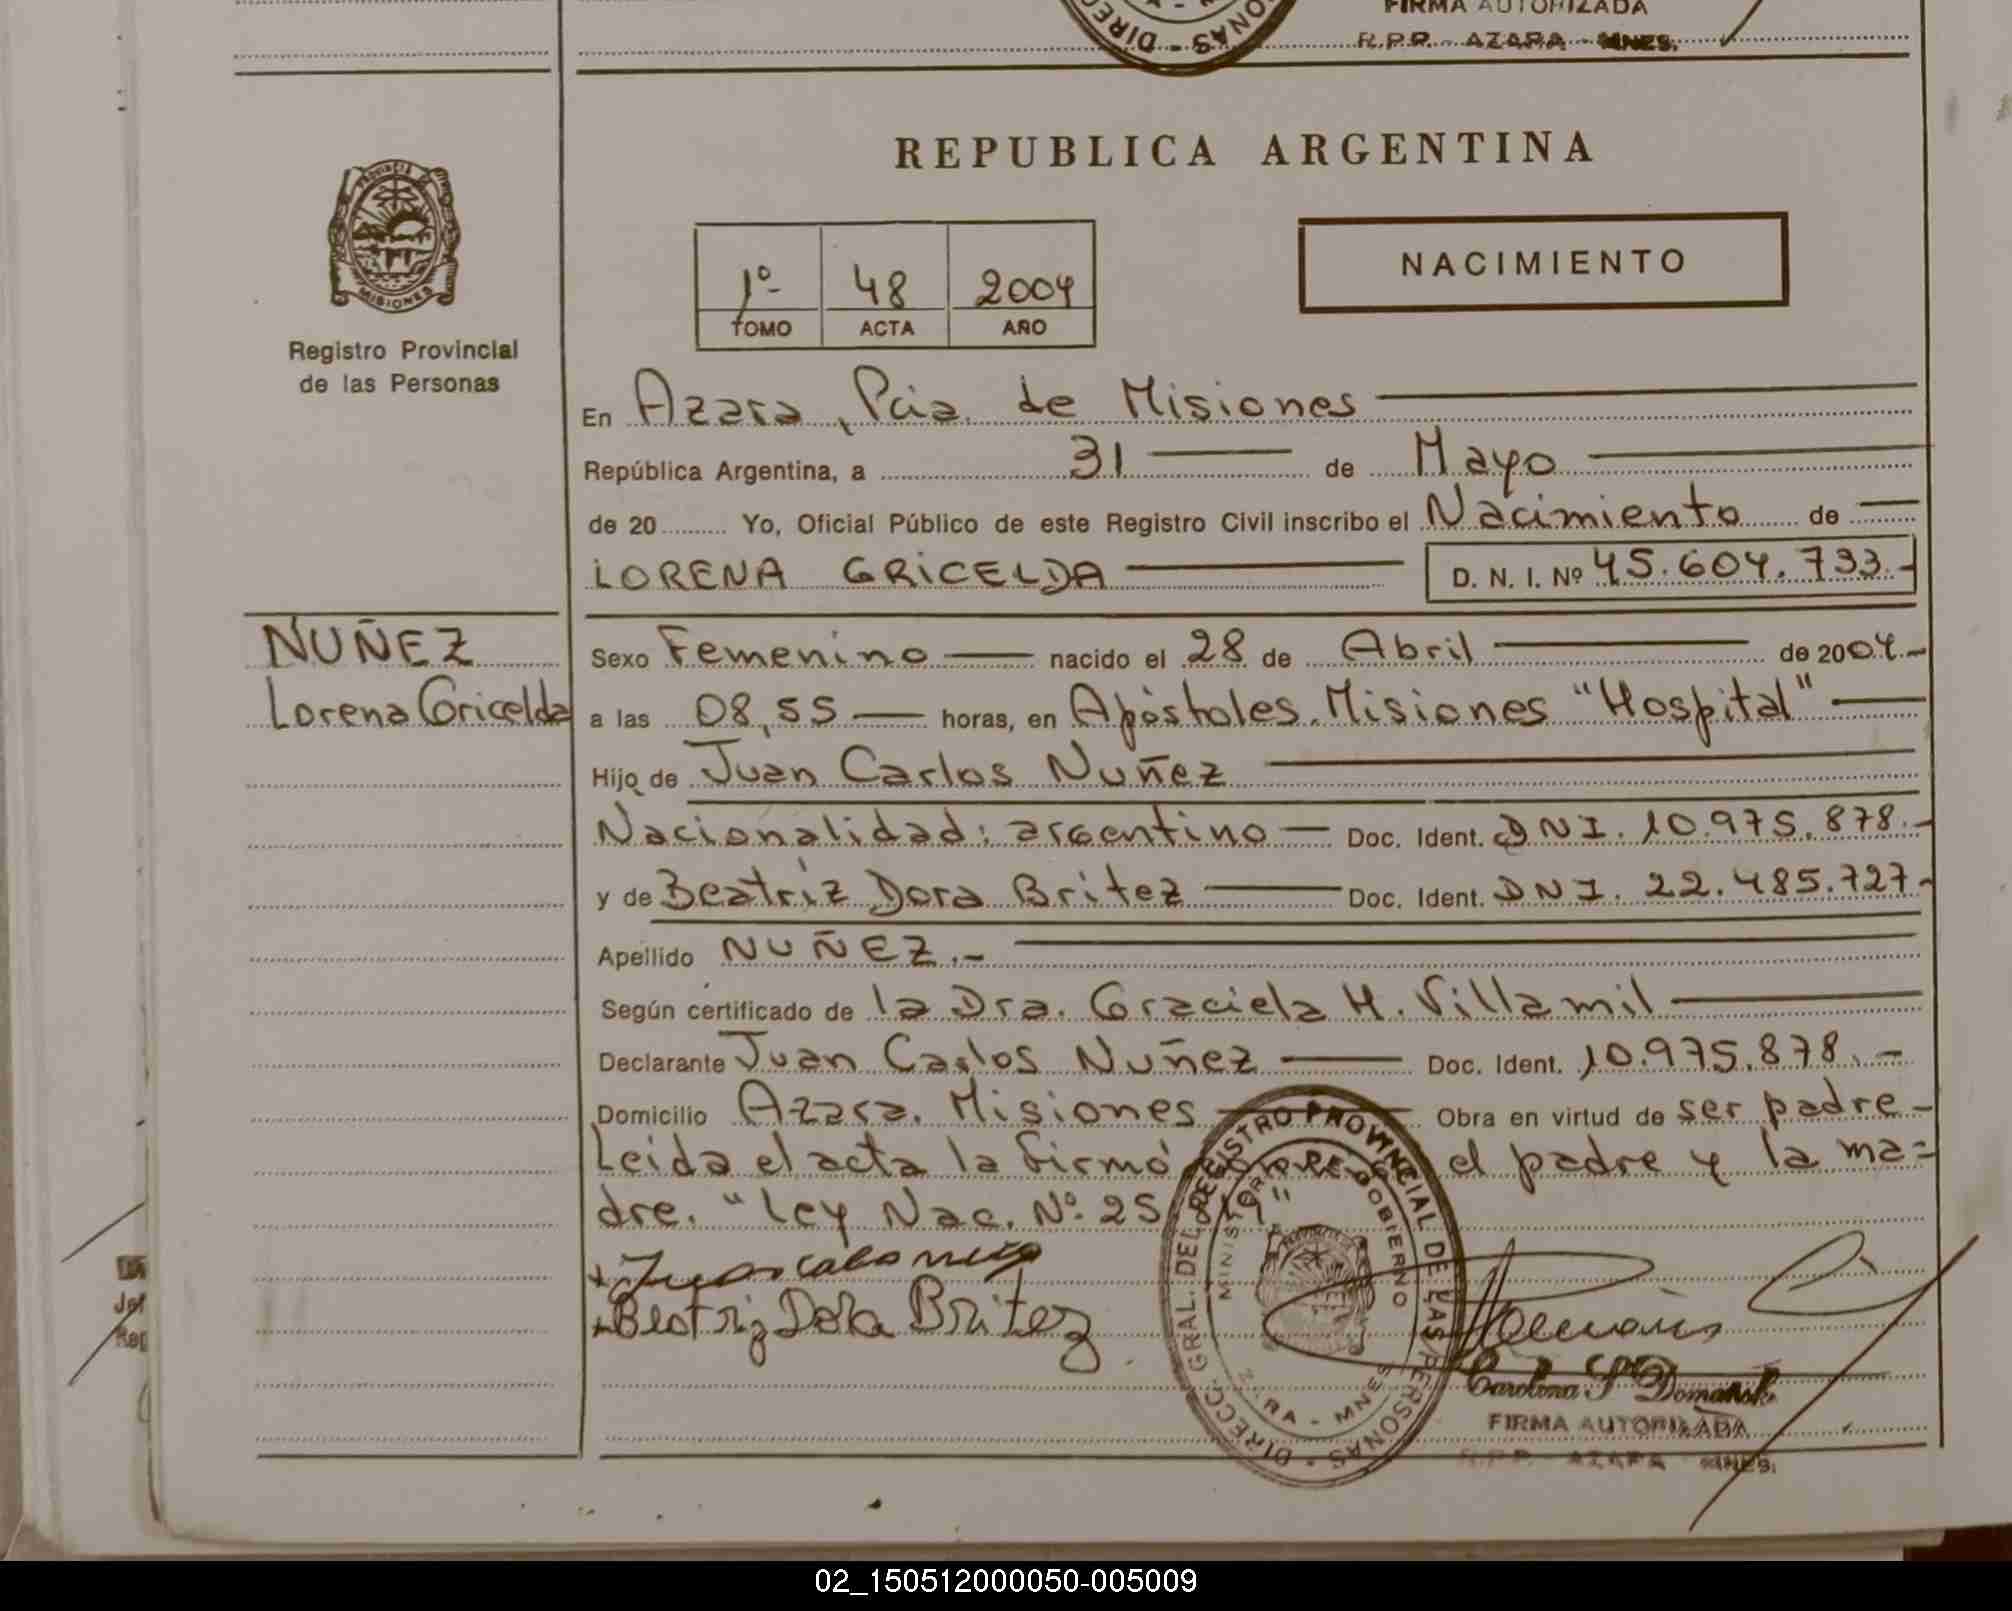 FIRMA AUTORIZADA
R.P.P. - AZARA - MNES.
DIRECC
SONAS
REPUBLICA ARGENTINA
PROVINCIA DE
MISIONES
1º
48
2004
TOMO
ACTA
AÑO
NACIMIENTO
Registro Provincial
de las Personas
En Azara, Pcia. de Misiones
República Argentina, a 31 de Mayo
de 20 Yo, Oficial Público de este Registro Civil inscribo el Nacimiento de
LORENA GRICELDA
D. N. I. Nº 45.604.733.-
NUÑEZ
Lorena Gricelda
Sexo Femenino nacido el 28 de Abril de 2004.-
a las 08,55 horas, en Apóstoles. Misiones "Hospital"
Hijo de Juan Carlos Nuñez
Nacionalidad: argentino Doc. Ident. DNI. 10.975.878.-
y de Beatríz Dora Britez Doc. Ident. DNI. 22.485.727.-
Apellido NUÑEZ.-
Según certificado de la Dra. Graciela H. Villamil
Declarante Juan Carlos Nuñez Doc. Ident. 10.975.878.-
Domicilio Azara. Misiones Obra en virtud de ser padre-
Leida el acta la firmó el padre y la ma=
dre. "Ley Nac. Nº 25.819"
Beatriz Dora Britez
DIRECC. GRAL. DEL REGISTRO PROVINCIAL DE LAS PERSONAS
MINISTERIO DE GOBIERNO
AZARA - MNES
Carolina Domanski
FIRMA AUTORIZADA
R.P.P. - AZARA - MNES.
02_150512000050-005009